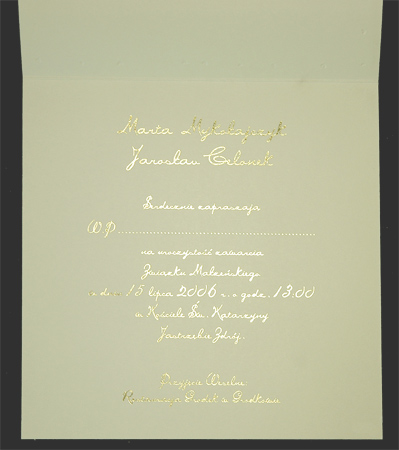 Marta Mykołajczyk
Jarosław Celonek
Serdecznie zapraszają
WP.
na uroczystość zawarcia
Związku Małżeńskiego
w dniu 15 lipca 2006 r. o godz. 13.00
w Kościele Św. Katarzyny
Jastrzębie Zdrój.
Przyjęcie Weselne